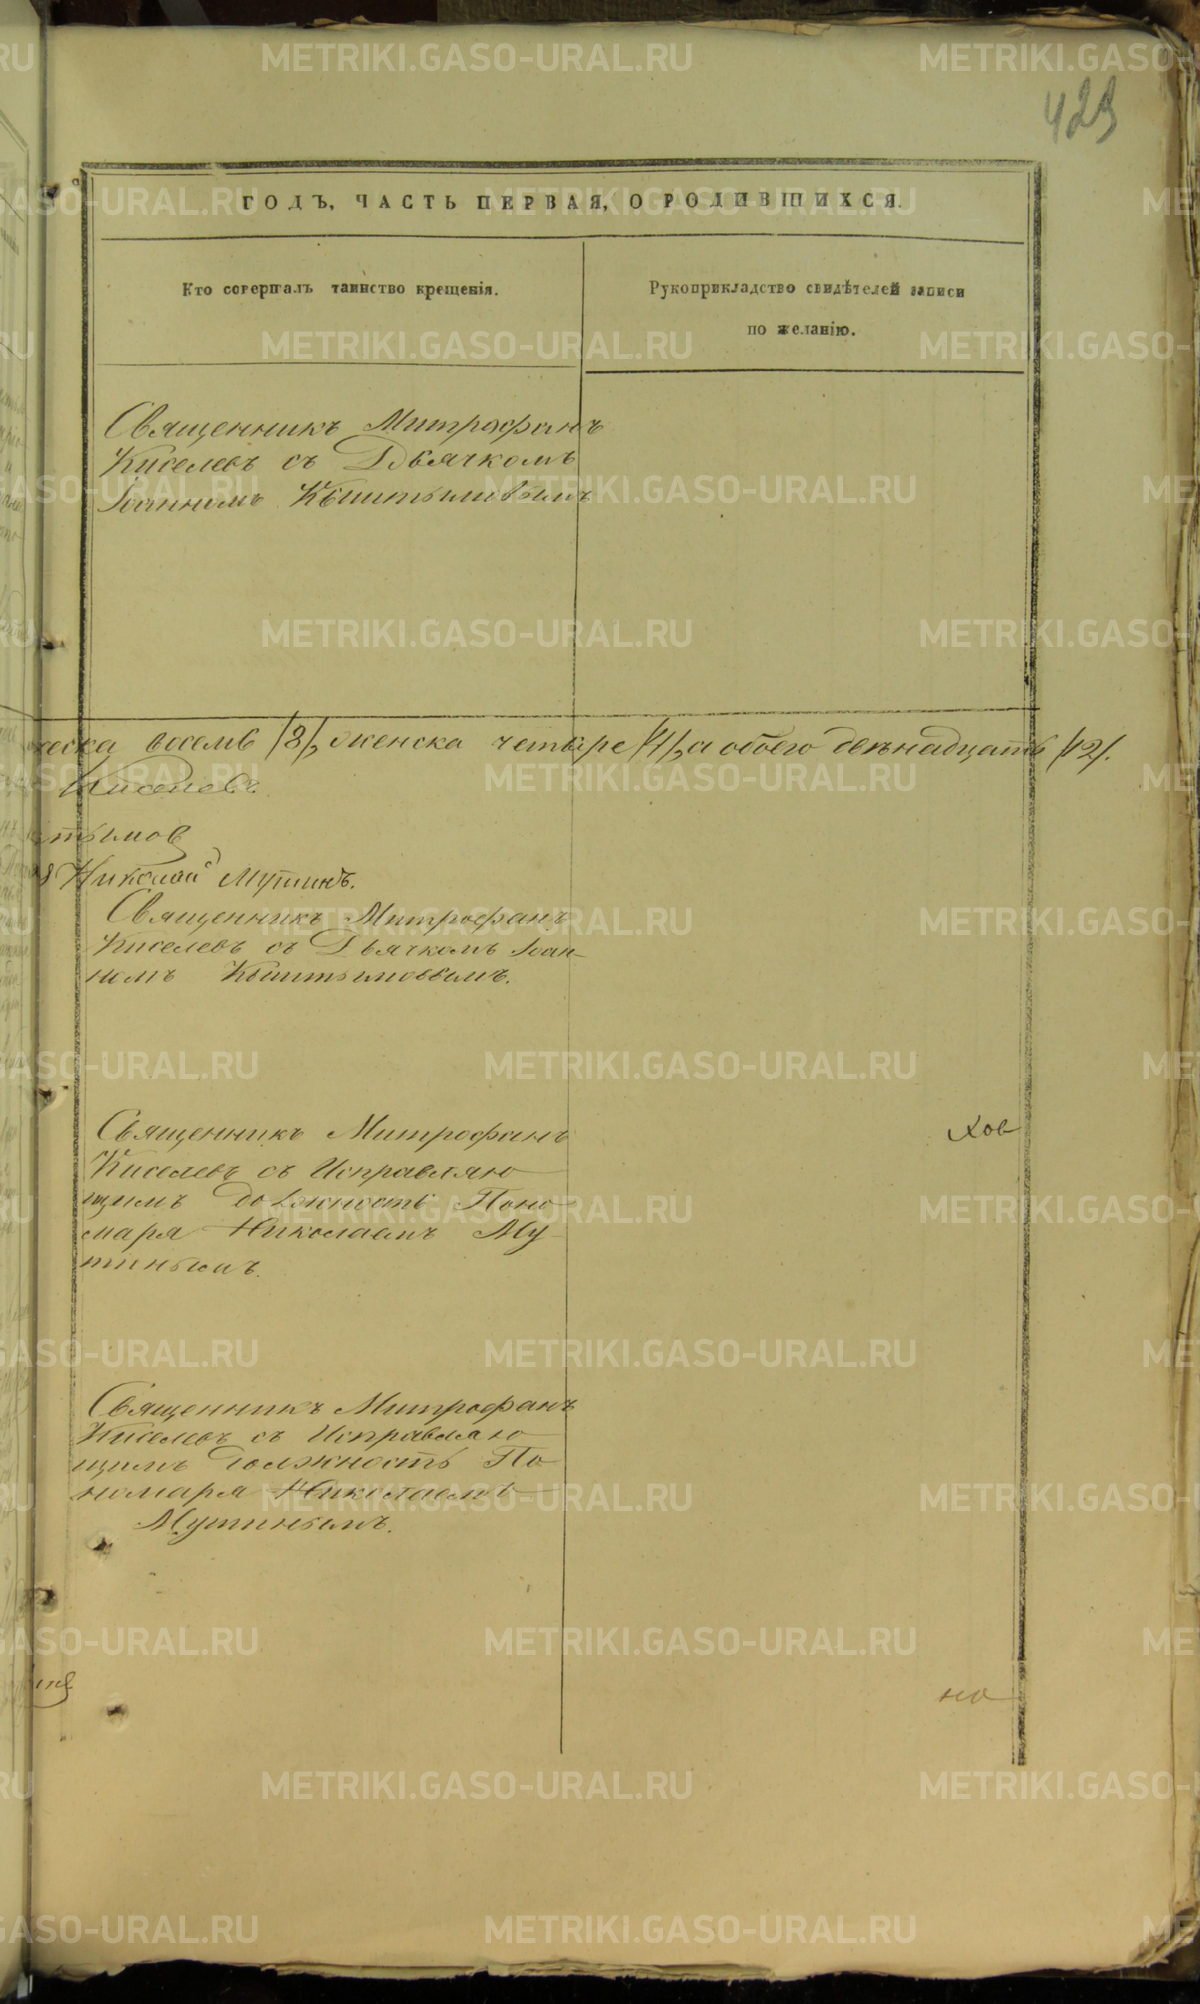 423
ГОДЪ, ЧАСТЬ ПЕРВАЯ, О РОДИВШИХСЯ.
Кто совершалъ таинство крещенія.
Рукоприкладство свидѣтелей записи
по желанію.
Священникъ Митрофанъ
Киселевъ съ Дьячкомъ
Іоанномъ Кыштымовымъ
ческа восемь /8/, женска четыре /4/, а обоего двѣнадцать /12/.
Киселевъ.
тымов
Николай Мутинъ.
Священникъ Митрофанъ
Киселевъ съ Дьячкомъ Іоан-
номъ Кыштымовымъ.
Священникъ Митрофанъ
Киселевъ съ Исправляю
щимъ должность Поно
маря Николаемъ Му
тинымъ.
ков
Священникъ Митрофанъ
Киселевъ съ Исправляю
щимъ должность По
номаря Николаемъ
Мутинымъ.
но
METRIKI.GASO-URAL.RU